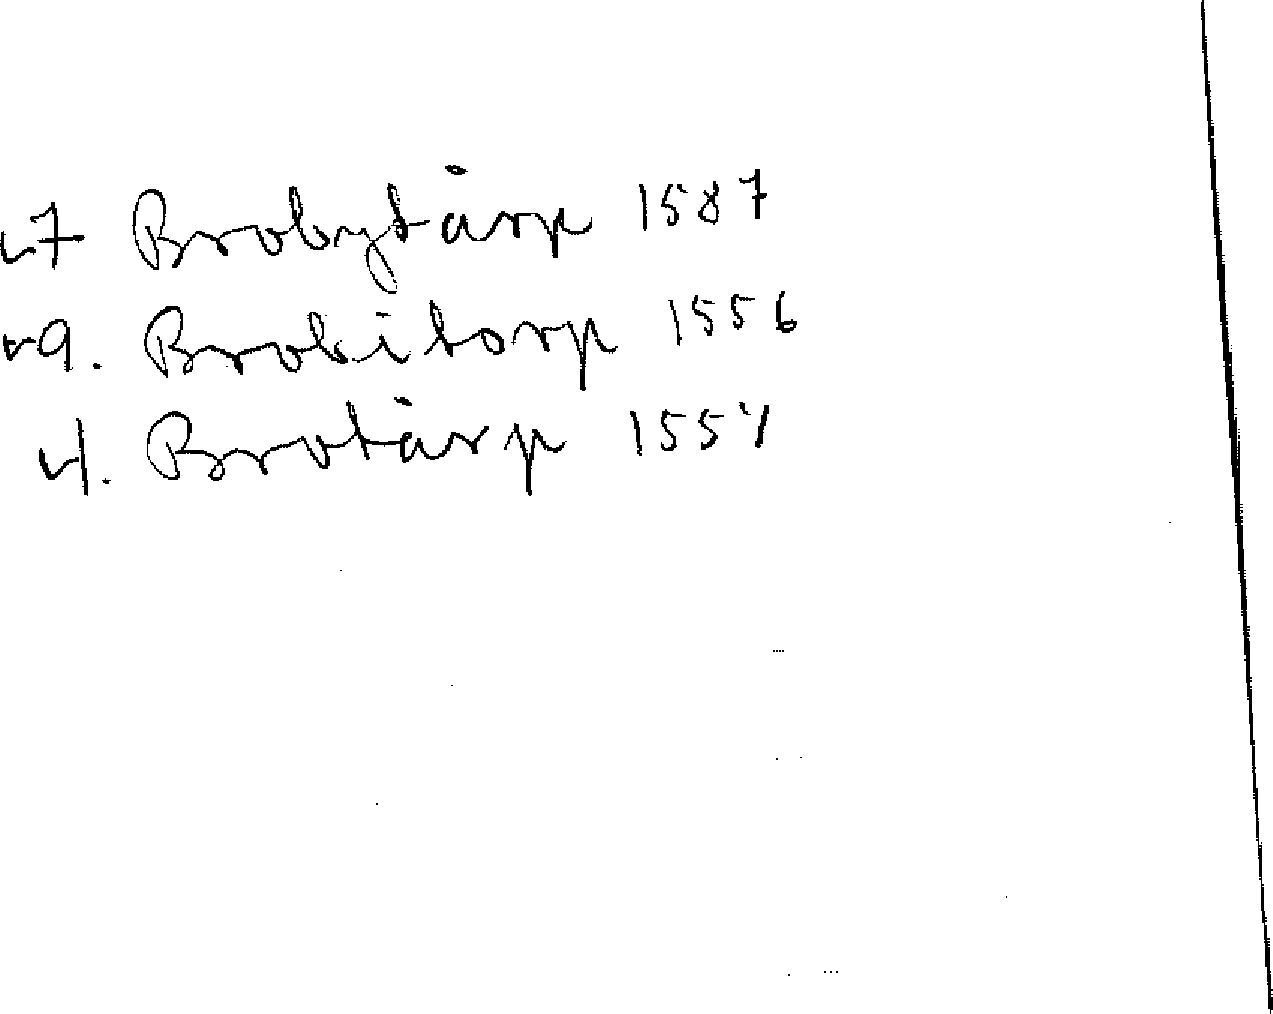 v7 Brobytårp 1587
v9. Brobitorp 1556
v1. Brotårp 1557